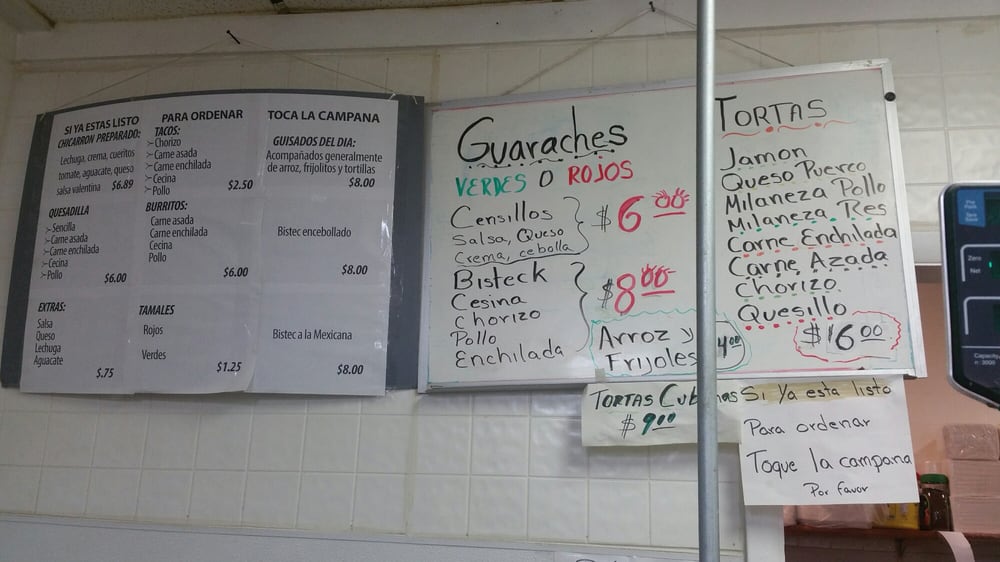 SI YA ESTAS LISTO
CHICARRON PREPARADO:
Lechuga, crema, cueritos
tomate, aguacate, queso
salsa valentina $6.89
QUESADILLA
Sencilla
Carne asada
Carne enchilada
Cecina
Pollo
$6.00
EXTRAS:
Salsa
Queso
Lechuga
Aguacate
$.75
PARA ORDENAR
TACOS:
Chorizo
Carne asada
Carne enchilada
Cecina
Pollo
$2.50
BURRITOS:
Carne asada
Carne enchilada
Cecina
Pollo
$6.00
TAMALES
Rojos
Verdes
$1.25
TOCA LA CAMPANA
GUISADOS DEL DIA:
Acompañados generalmente
de arroz, frijolitos y tortillas
$8.00
Bistec encebollado
$8.00
Bistec a la Mexicana
$8.00
Guaraches
VERDES O ROJOS
Censillos
Salsa, Queso
Crema, cebolla
$6.00
Bisteck
Cesina
Chorizo
Pollo
Enchilada
$8.00
Arroz y
Frijoles 4.00
TORTAS
Jamon
Queso Puerco
Milaneza Pollo
Milaneza Res
Carne Enchilada
Carne Azada
Chorizo
Quesillo
$6.00
TORTAS Cubanas
$9.00
Si Ya esta listo
Para ordenar
Toque la campana
Por favor
Zero
Net